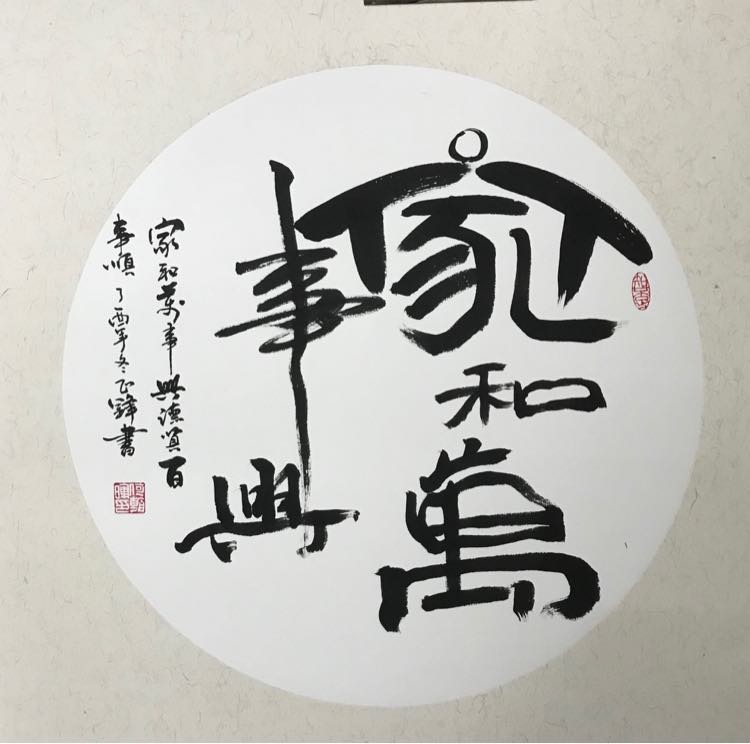 家和萬
事興
家和萬事興德賢百
事順丁酉年冬正鋒書